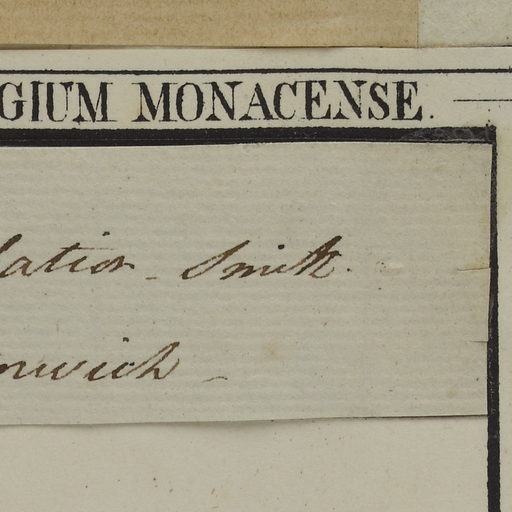 GIUM MONACENSE.
latior - Smith.
nwich -